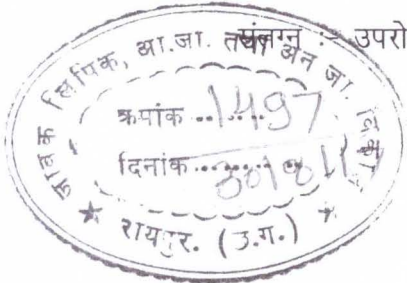 संलग्न :- उपरो
जावक लिपिक, आ.जा. तथा अन जा. वि
क्रमांक ..1497
दिनांक........
★ रायपुर. (उ.ग.) ★